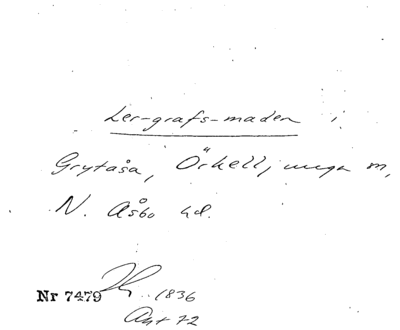 Ler-grafs-maden i
Grytåsa, Örkelljunga m,
N. Åsbo hd.
Nr 7479 1836
Avt 72